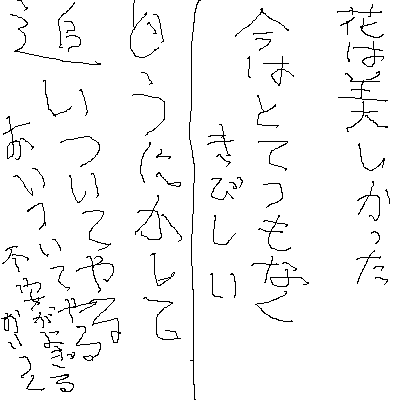 花は美しかった
今はとてつもなく
きびしい
どうにかして
追いついてやる
おいついてやる
不安がよぎる